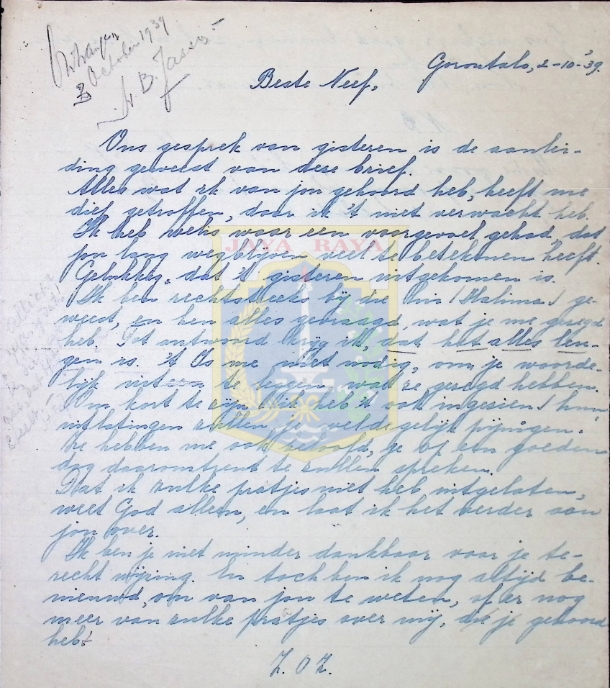 October 1939
H. B. Jassin
Gorontalo, 2-10-'39.
Beste Neef,
Ons gesprek van gisteren is de aanlei-
ding geweest van deze brief.
Alles wat ik van jou gehoord heb, heeft me
diep getroffen, daar ik 't niet verwacht heb.
Ik heb reeds waar een voorgevoel gehad, dat
jou lang wegblijven veel te betekenen heeft.
Gelukkig, dat 't gisteren uitgekomen is.
JAYA RAYA
Ik ben rechtstreeks bij die (Halima) ge-
weest, en hen alles gevraagd, wat je me gezegd
heb. Tot antwoord krijg ik, dat het alles leu-
gen is. 't Is me niet nodig, om je woorde-
lijk te wat ze gezegd hebben.
Om kort te zijn (ik heb 't ook ingezien) hun
uitlatingen zullen je pijnigen.
Ze hebben me ook beloofd, je op een goeden
dag daaromtrent te zullen spreken.
Dat ik zulke praatjes niet heb uitgelaten,
weet God alleen, en laat ik het verder aan
jou over.
Ik ben je niet minder dankbaar voor je te-
recht wijzing. En toch ben ik nog altijd be-
nieuwd, om van jou te weten, of er nog
meer van zulke praatjes over mij, die je gehoord
heb.
Z.O.Z.